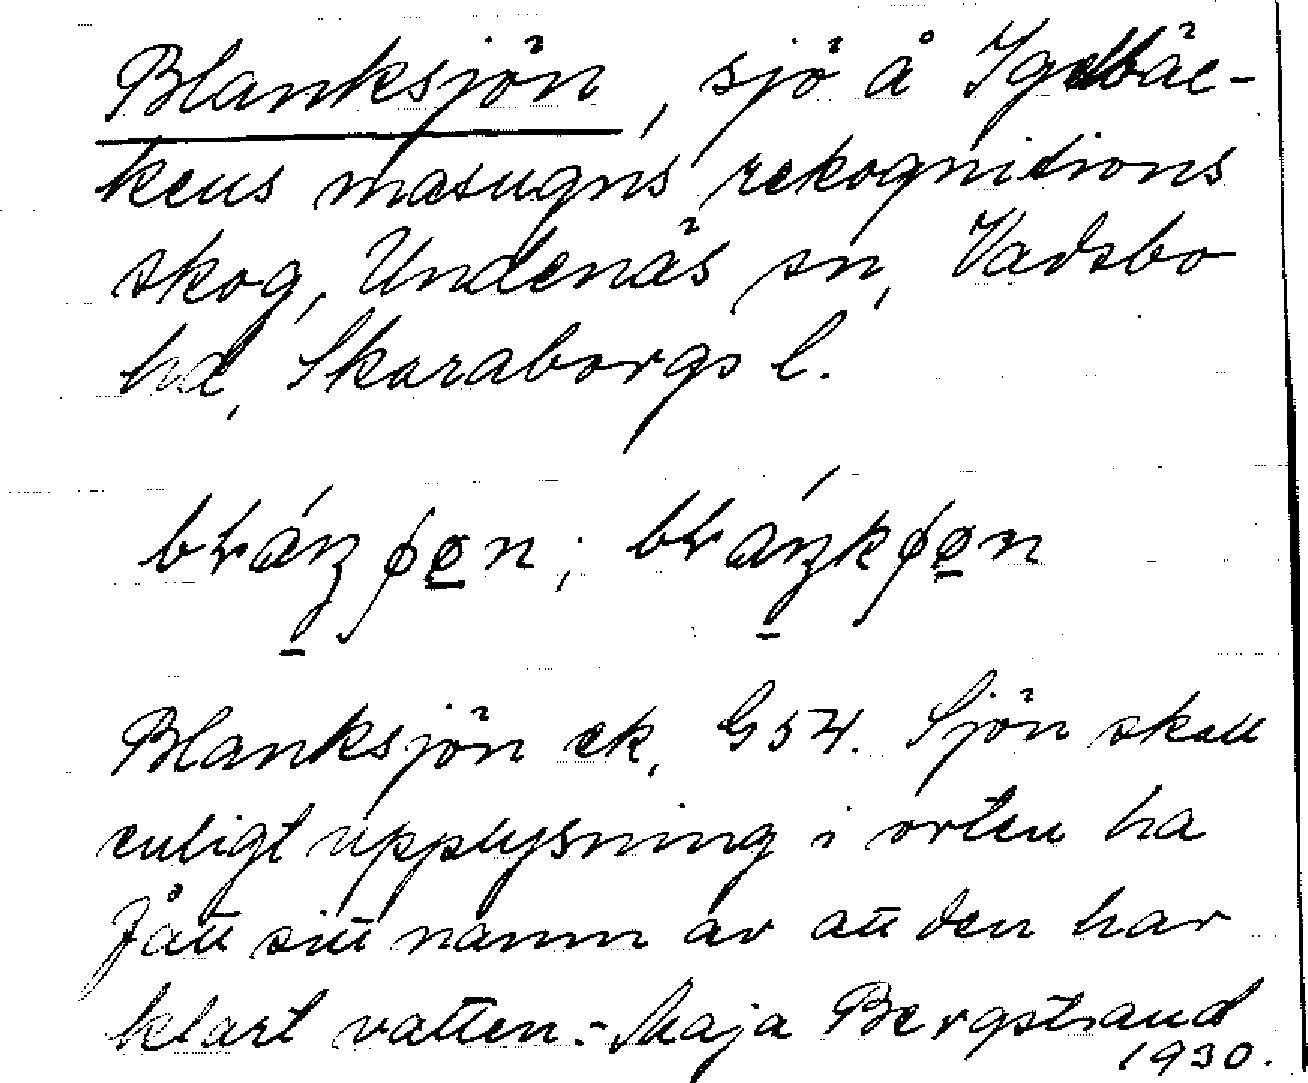 Blanksjön, sjö å Igelbäc-
kens masugns rekognitions
skog, Undenäs sn, Vadsbo
hd, Skaraborgs l.
Blanksjön ek, G54. Sjön skall
enligt upplysning i orten ha
fått sitt namn av att den har
klart vatten.- Maja Bergstrand
1930.